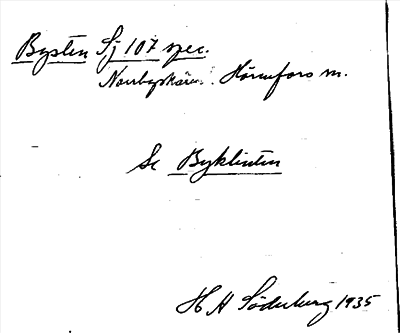 Bysten Sj 107 spec.
Norrbyskär. Hörnefors m.
Se Byklinten
H A Söderberg 1935